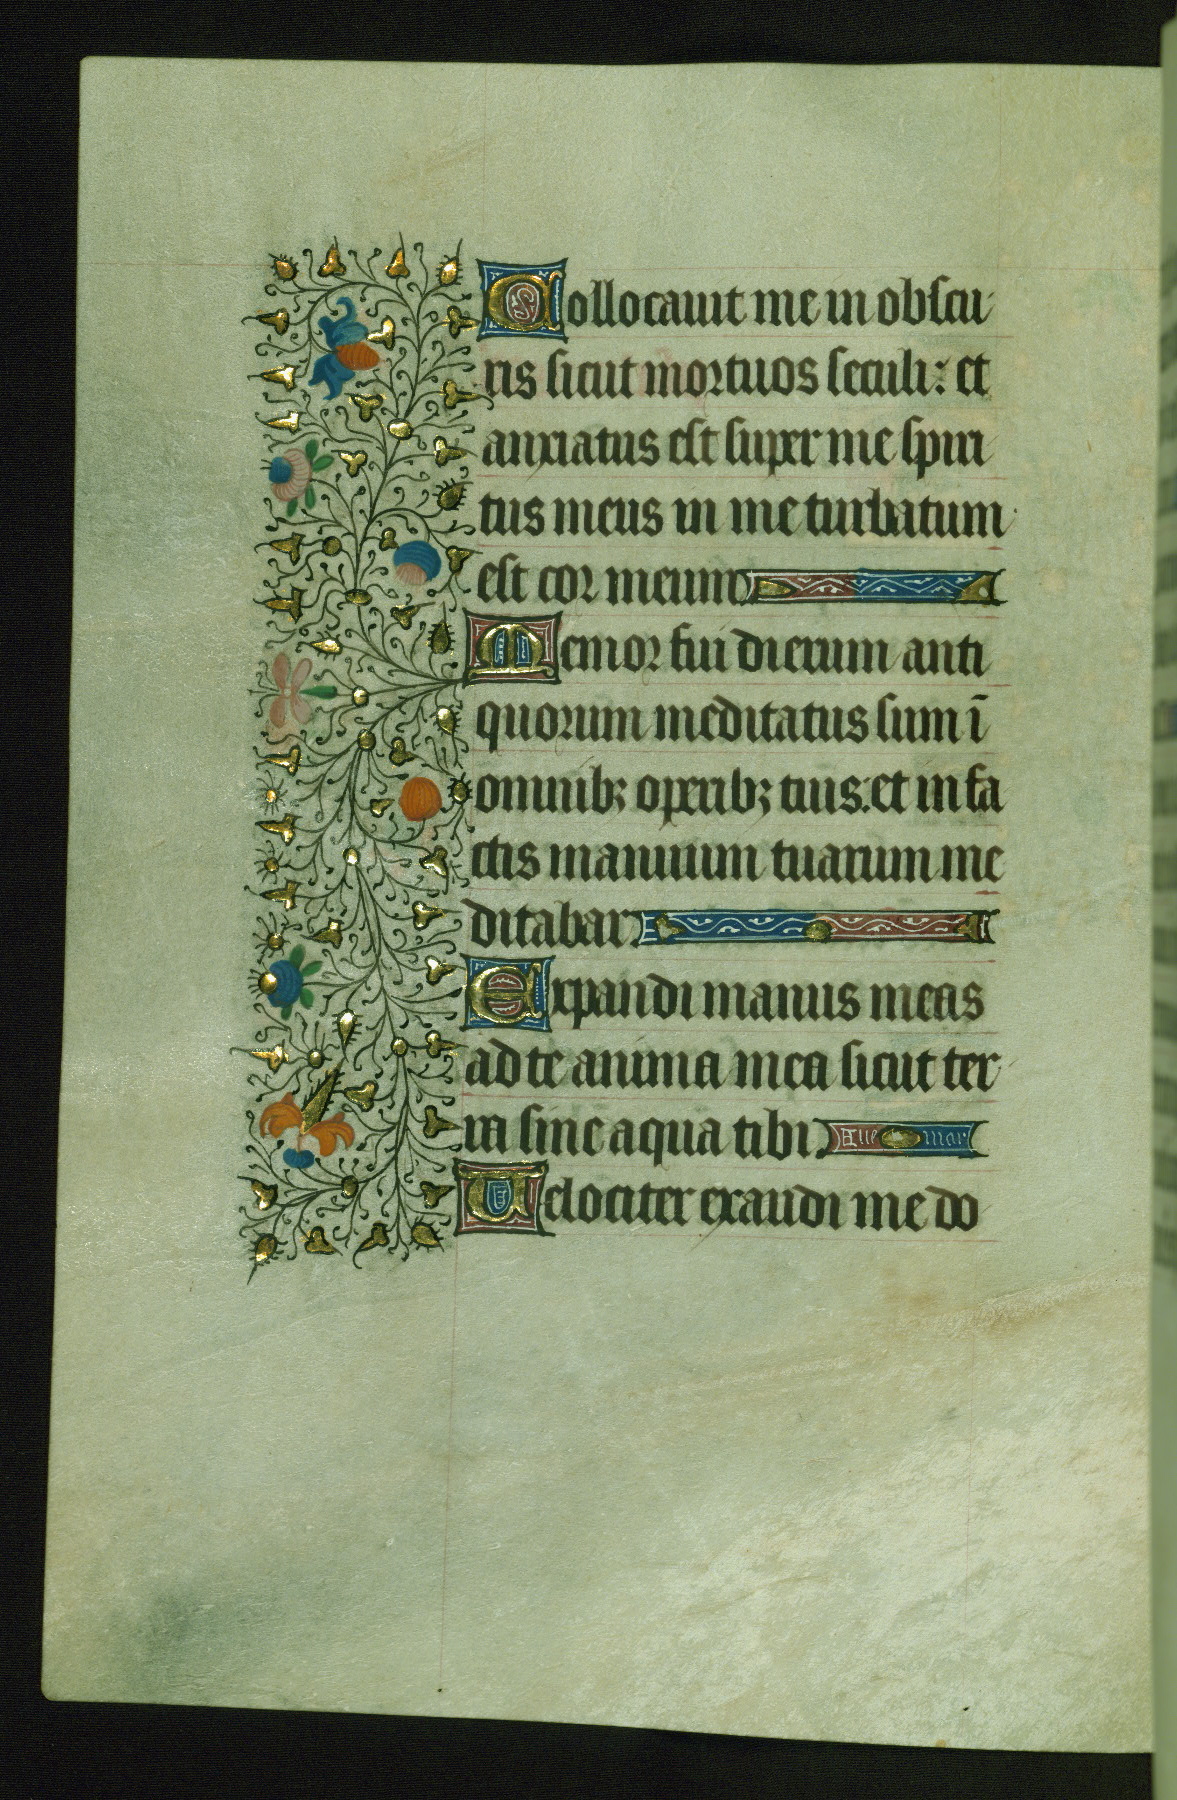 Collocauit me in obscu
ris sicut mortuos seculi: et
anxiatus est super me spiri
tus meus in me turbatum
est cor meum
Memor fui dierum anti
quorum meditatus sum ī
omnibꝫ operibꝫ tuis: et in fa
ctis manuum tuarum me
ditabar.
Expandi manus meas
ad te anima mea sicut ter
ra sine aqua tibi. Aue mar
Uelociter exaudi me do